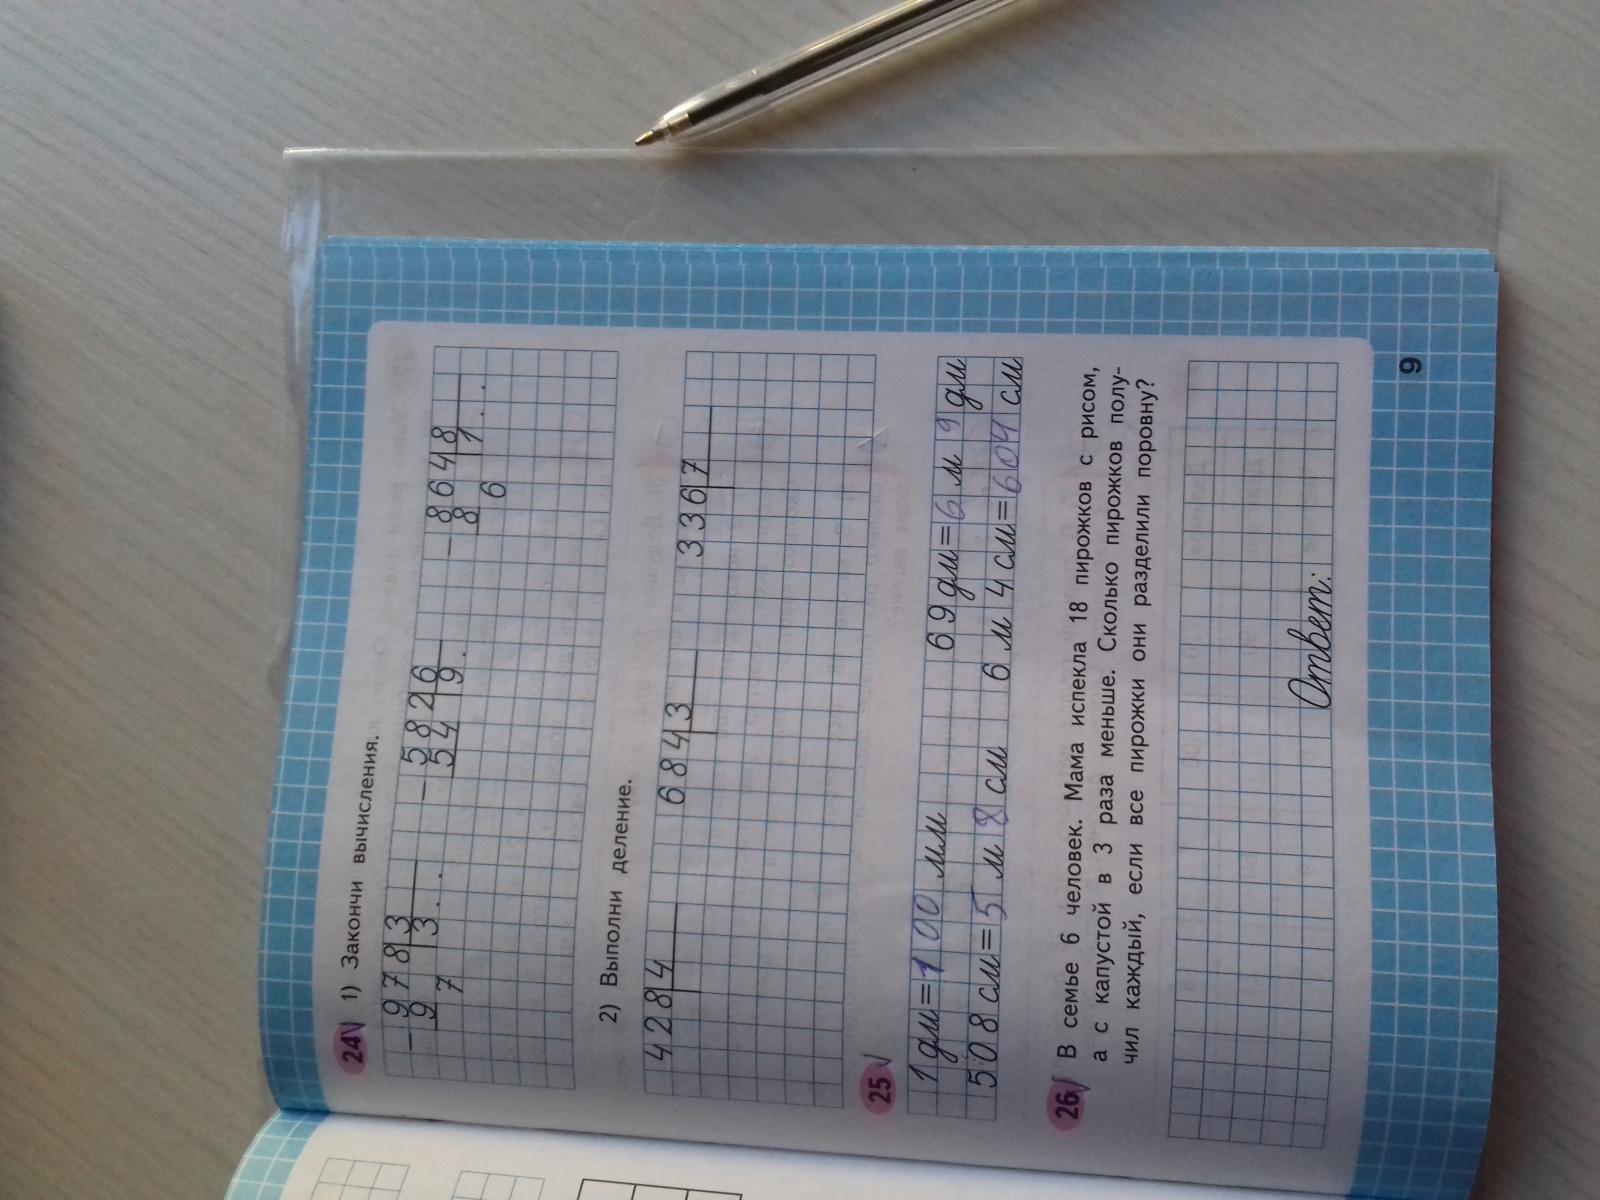 24 1) Закончи вычисления.
– 978 3 – 582 6 – 864 8
9 3 . . 54 9 . 8 1 . .
7 6
2) Выполни деление.
428 4 684 3 336 7
25
1 дм = 100 мм 69 дм = 6 м 9 дм
508 см = 5 м 8 см 6 м 4 см = 604 см
26 В семье 6 человек. Мама испекла 18 пирожков с рисом,
а с капустой в 3 раза меньше. Сколько пирожков полу-
чил каждый, если все пирожки они разделили поровну?
Ответ:
9